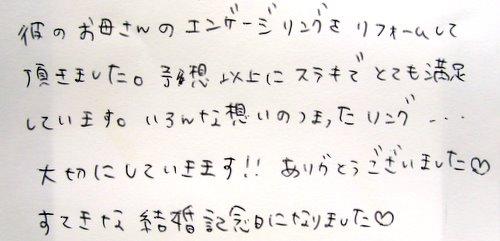 彼のお母さんのエンゲージリングをリフォームして
頂きました。予想以上にステキでとても満足
しています。いろんな想いのつまったリング...
大切にしていきます!! ありがとうございました♡
すてきな結婚記念日になりました♡